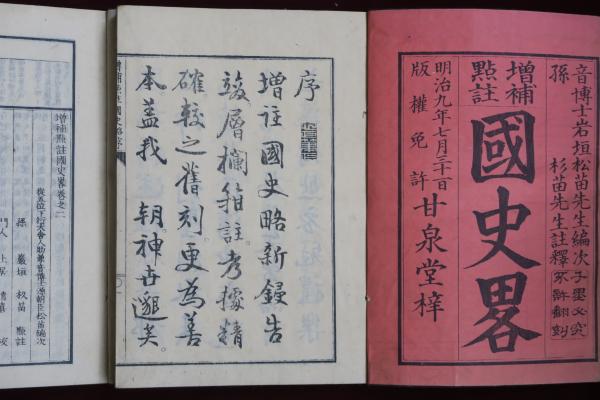 音博士岩垣松苗先生編次
孫 杉苗先生註釋
不許翻刻
增補
點註
國史畧
明治九年七月三十一日
版權免許
甘泉堂梓
序
增註國史略新鋟告
竣層欄箱註考據精
確較之舊刻更為善
本蓋我 朝神古邈矣
增補點註國史畧卷之二
從五位下行大舍人助兼音博士源朝臣松苗編次
孫 巖垣 杉苗 點註
門人
校